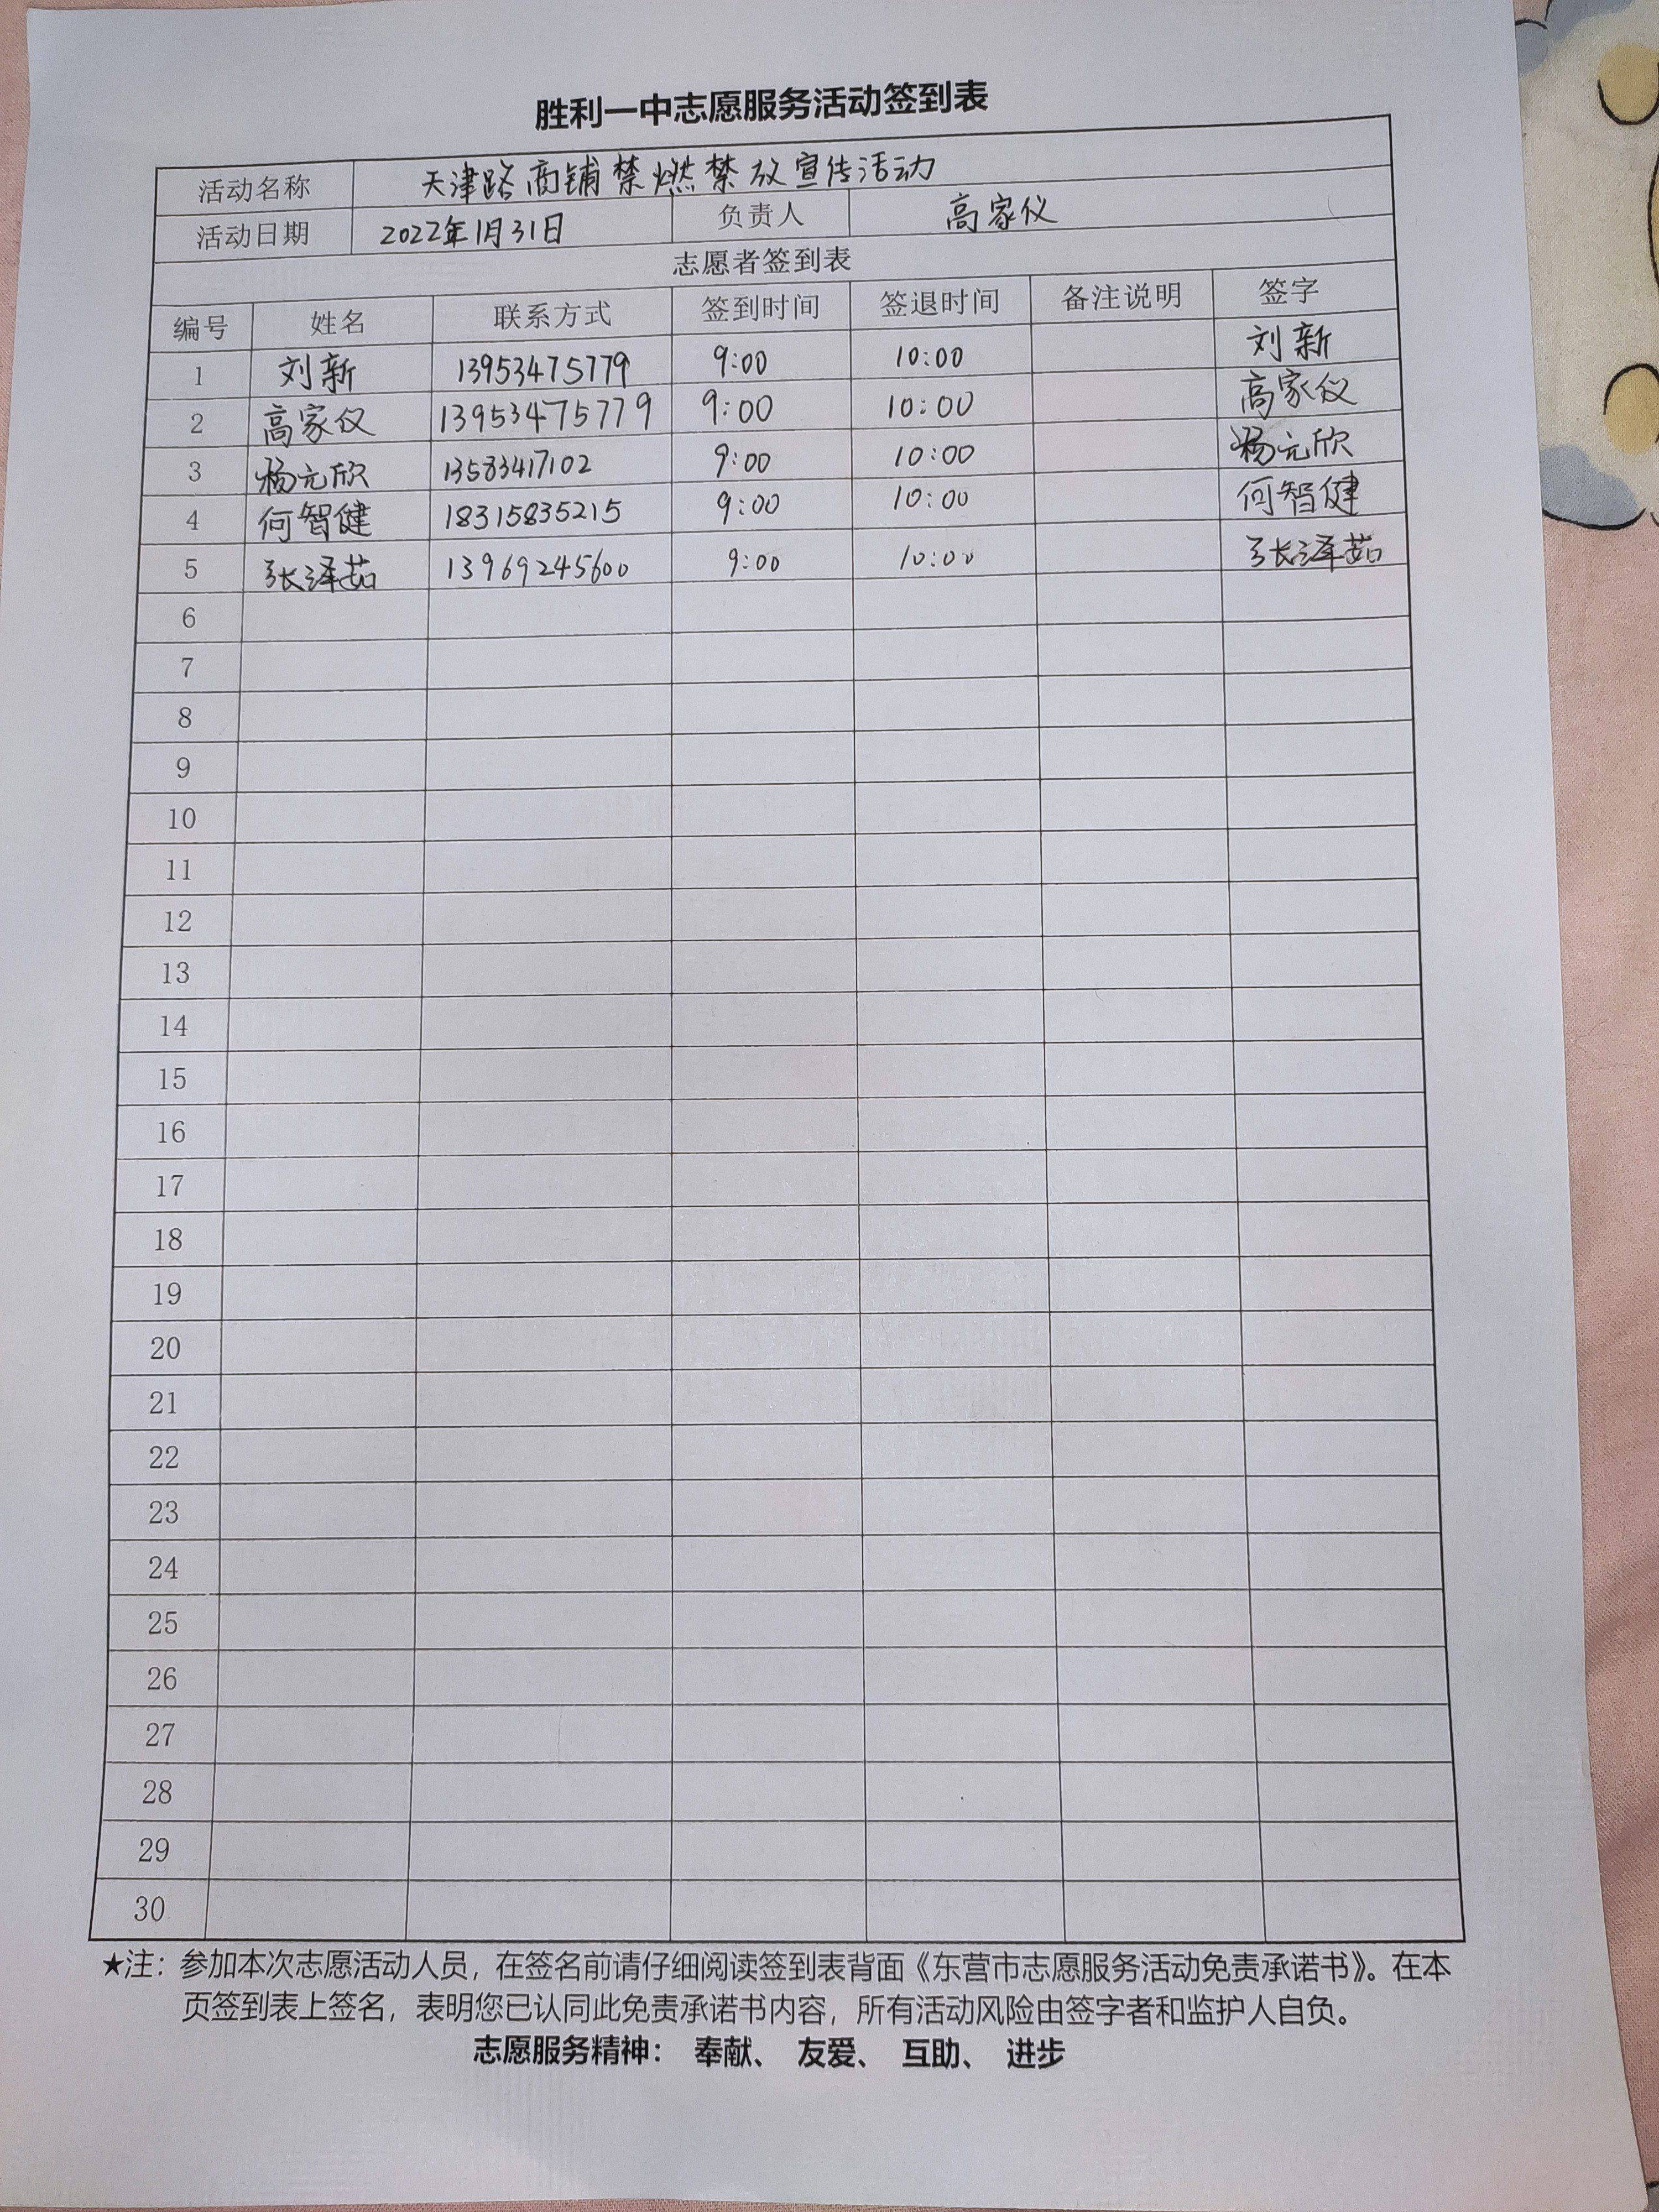 胜利一中志愿服务活动签到表
活动名称 天津路商铺禁燃禁放宣传活动
活动日期 2022年1月31日 负责人 高家仪
志愿者签到表
编号 姓名 联系方式 签到时间 签退时间 备注说明 签字
1 刘新 13953475779 9:00 10:00 刘新
2 高家仪 13953475779 9:00 10:00 高家仪
3 杨元欣 13583417102 9:00 10:00 杨元欣
4 何智健 18315835215 9:00 10:00 何智健
5 张泽茹 13969245600 9:00 10:00 张泽茹
6
7
8
9
10
11
12
13
14
15
16
17
18
19
20
21
22
23
24
25
26
27
28
29
30
★注：参加本次志愿活动人员，在签名前请仔细阅读签到表背面《东营市志愿服务活动免责承诺书》。在本
页签到表上签名，表明您已认同此免责承诺书内容，所有活动风险由签字者和监护人自负。
志愿服务精神： 奉献、 友爱、 互助、 进步